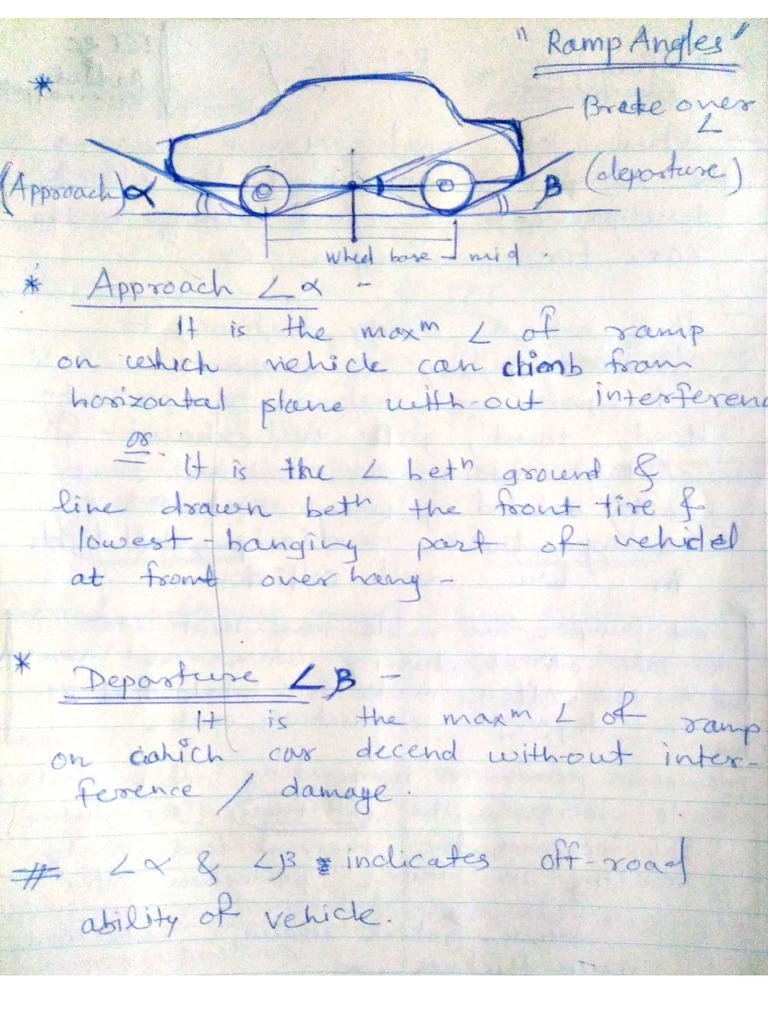 " Ramp Angles "
*
Brake over
∠
(Approach) α
β (departure)
wheel base - mid .
* Approach ∠ α -
It is the maxᵐ ∠ of ramp
on which vehicle can climb from
horizontal plane with-out interferenc
or. It is the ∠ betⁿ ground &
line drawn betⁿ the front tire &
lowest-hanging part of vehicle
at front over hang -
* Departure ∠ β -
It is the maxᵐ ∠ of ramp
on which car decend with-out inter-
ference / damage .
# ∠α & ∠β indicates off-road
ability of vehicle.